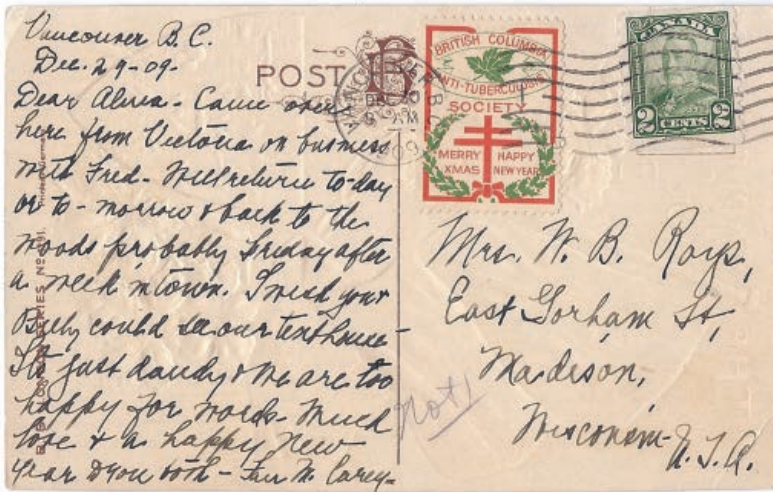 Vancouver B.C.
Dec. 29-09-
Dear Alma - Came over
here from Victoria on business
with Fred - Will return to-day
or to-morrow & back to the
woods probably Friday after
a week in town. I wish you &
Billy could see our tenthouse -
It's just dandy & we are too
happy for words - Much
love & a happy New
Year to you both - M. Carey -
POST
BRITISH COLUMBIA
ANTI-TUBERCULOSIS
SOCIETY
MERRY XMAS
HAPPY NEW YEAR
CANADA
2 CENTS
DEC 30
Mrs. W. B. Roys,
East Gorham St,
Madison,
Wisconsin -
U.S.A.
Not 1